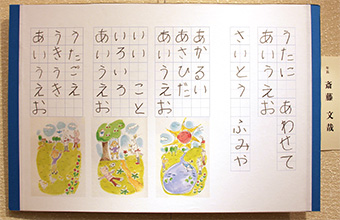 うたに あわせて
あいうえお
さいとう ふみや
あかるい
あさひだ
あいうえお
いい こと
いろいろ
あいうえお
うたごえ
うきうき
あいうえお
斎藤 文哉